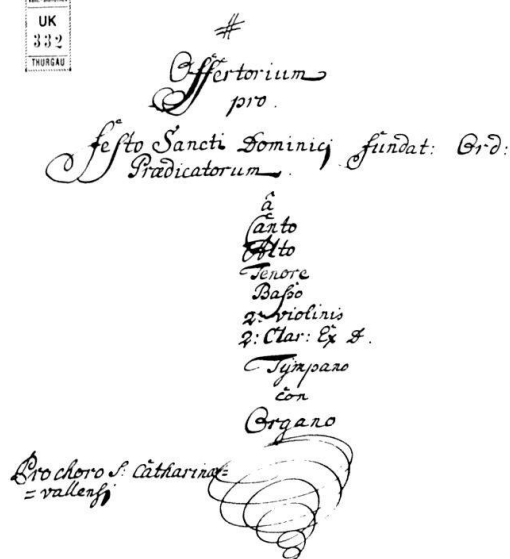 UK
332
THURGAU
#
Offertorium
pro.
festo Sancti Dominicj fundat: Ord:
Prædicatorum.
â
Canto
Alto
Tenore
Baſso
2: violinis
2: Clar: Ex D.
Tÿmpano
con
Organo
Pro choro S: Catharinæ=
=vallensj